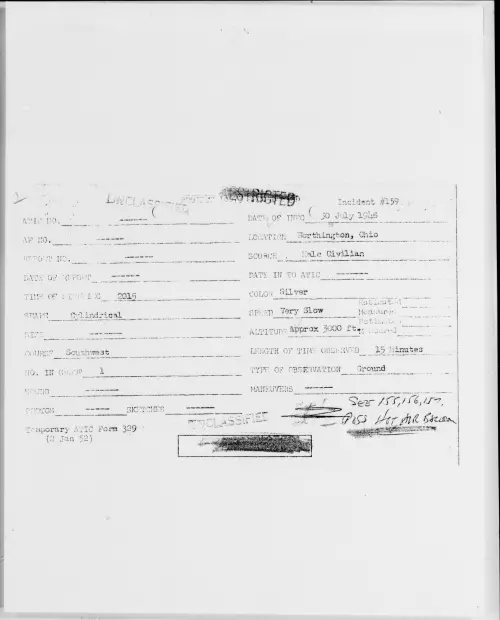 UNCLASSIFIED RESTRICTED Incident #159
ATIC NO. ------ DATE OF INFO 30 July 1948
AF NO. ------ LOCATION Worthington, Ohio
REPORT NO. ------ SOURCE Male Civilian
DATE OF REPORT ------ DATE IN TO ATIC ------
TIME OF SIGHTING 2015 COLOR Silver
SHAPE Cylindrical SPEED Very Slow Estimated Measured
SIZE ------ ALTITUDE Approx 3000 ft. Estimated Measured
COURSE Southwest LENGTH OF TIME OBSERVED 15 Minutes
NO. IN GROUP 1 TYPE OF OBSERVATION Ground
SOUND ------ MANEUVERS ------
PHOTOS ------ SKETCHES ------
See 155, 156, 157,
158 HOT AIR Balloon
Temporary ATIC Form 329
(2 Jan 52)
UNCLASSIFIED